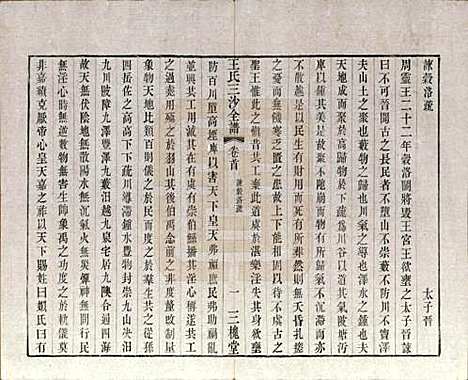 諫穀洛疏　太子晉
周靈王二十二年穀洛鬭將毀王宮王欲壅之太子晉諫
曰不可晉聞古之長民者不墮山不崇藪不防川不竇澤
夫山土之聚也藪物之歸也川氣之導也澤水之鍾也夫
天地成而聚於高歸物於下疏爲川谷以導其氣陂塘汚
庳以鍾其美是故聚不阤崩而物有所歸氣不沉滯而亦
不散越是以民生有財用而死有所葬然則無夭昏札瘥
之憂而無饑寒乏匱之患故上下能相固以待不虞古之
聖王惟此之愼昔共工棄此道虞於湛樂淫失其身欲壅
王氏三沙全譜　卷首　諫穀洛疏　一　三槐堂
防百川墮高堙庳以害天下皇天弗福庶民弗助禍亂
並興共工用滅其在有虞有崇伯鯀播其淫心稱遂共工
之過堯用殛之於羽山其後伯禹念前之非度釐改制量
象物天地比類百則儀之於民而度之於羣生共之從孫
四岳佐之高高下下疏川導滯鍾水豐物封崇九山決汨
九川陂鄣九澤豐殖九藪汨越九泉宅居九隩合通四海
故天無伏陰地無散陽水無沉氣火無災燀神無間行民
無淫心時無逆數物無害生帥象禹之功度之於軌儀莫
非嘉績克厭帝心皇天嘉之祚以天下賜姓曰姒氏曰有